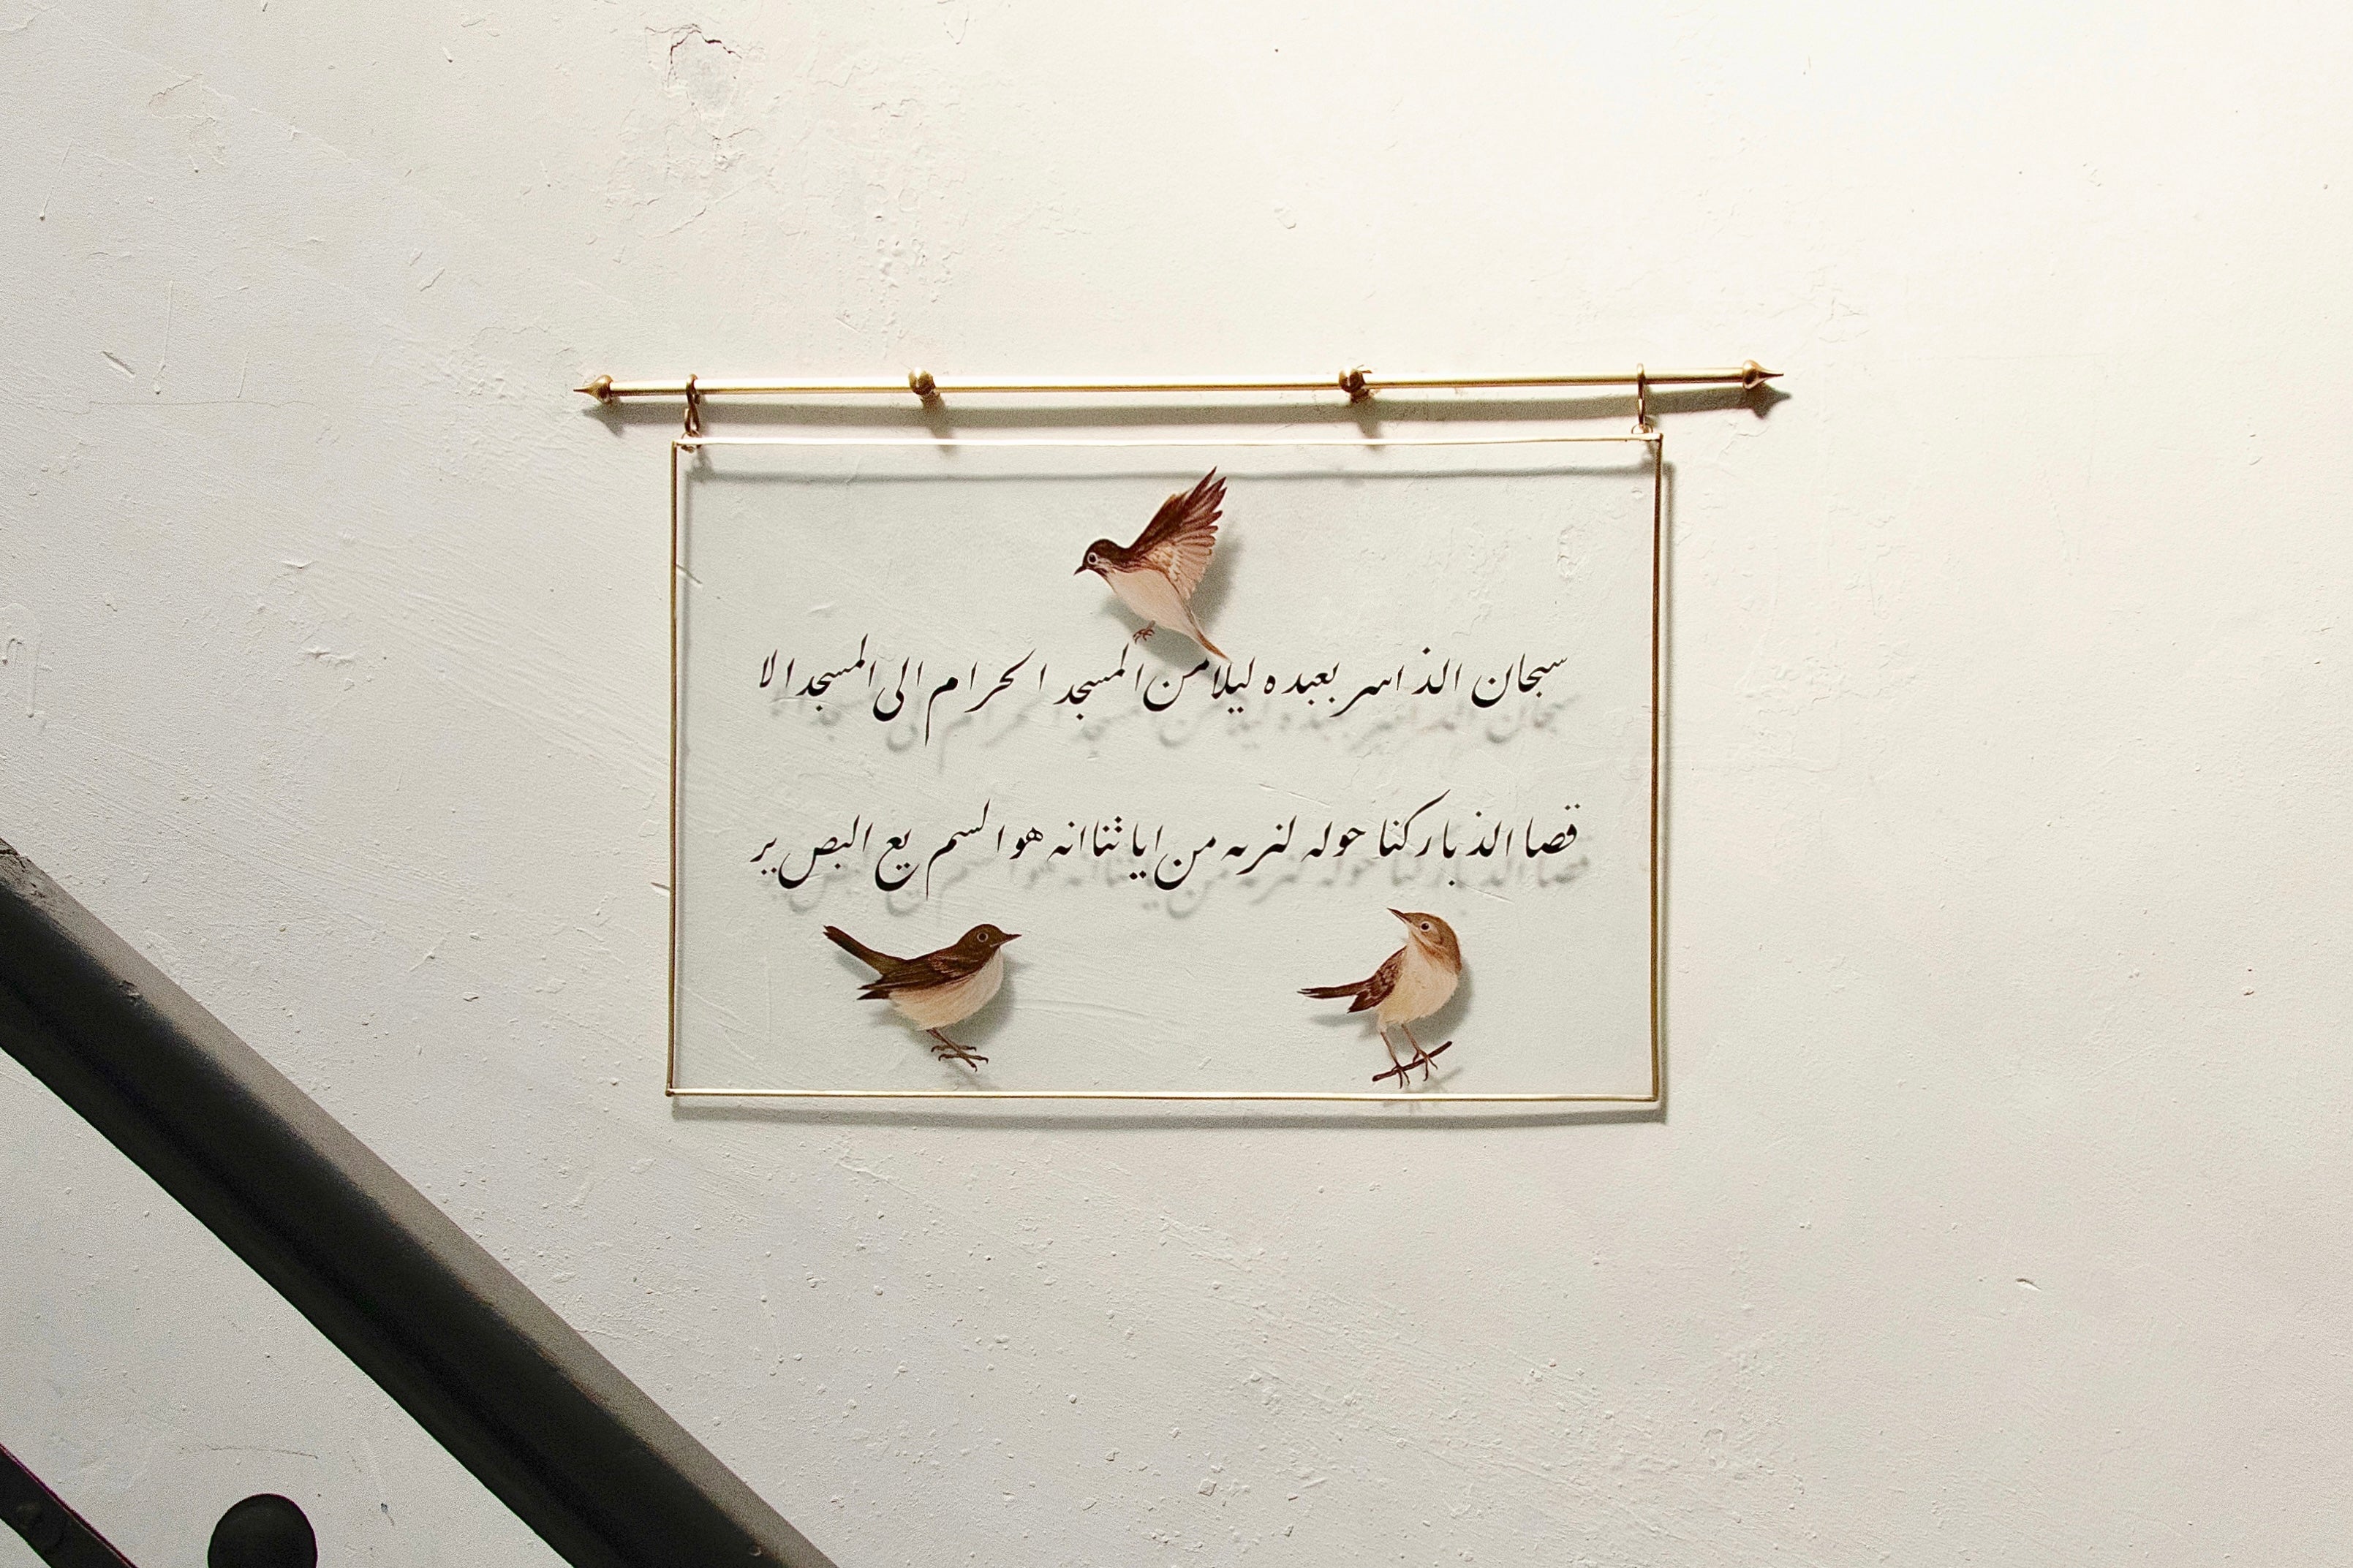 سبحان الذ اسر بعبده ليلا من المسجد الحرام الى المسجد الا
قصا الذ باركنا حوله لنريه من اياتنا انه هو السم يع البص ير